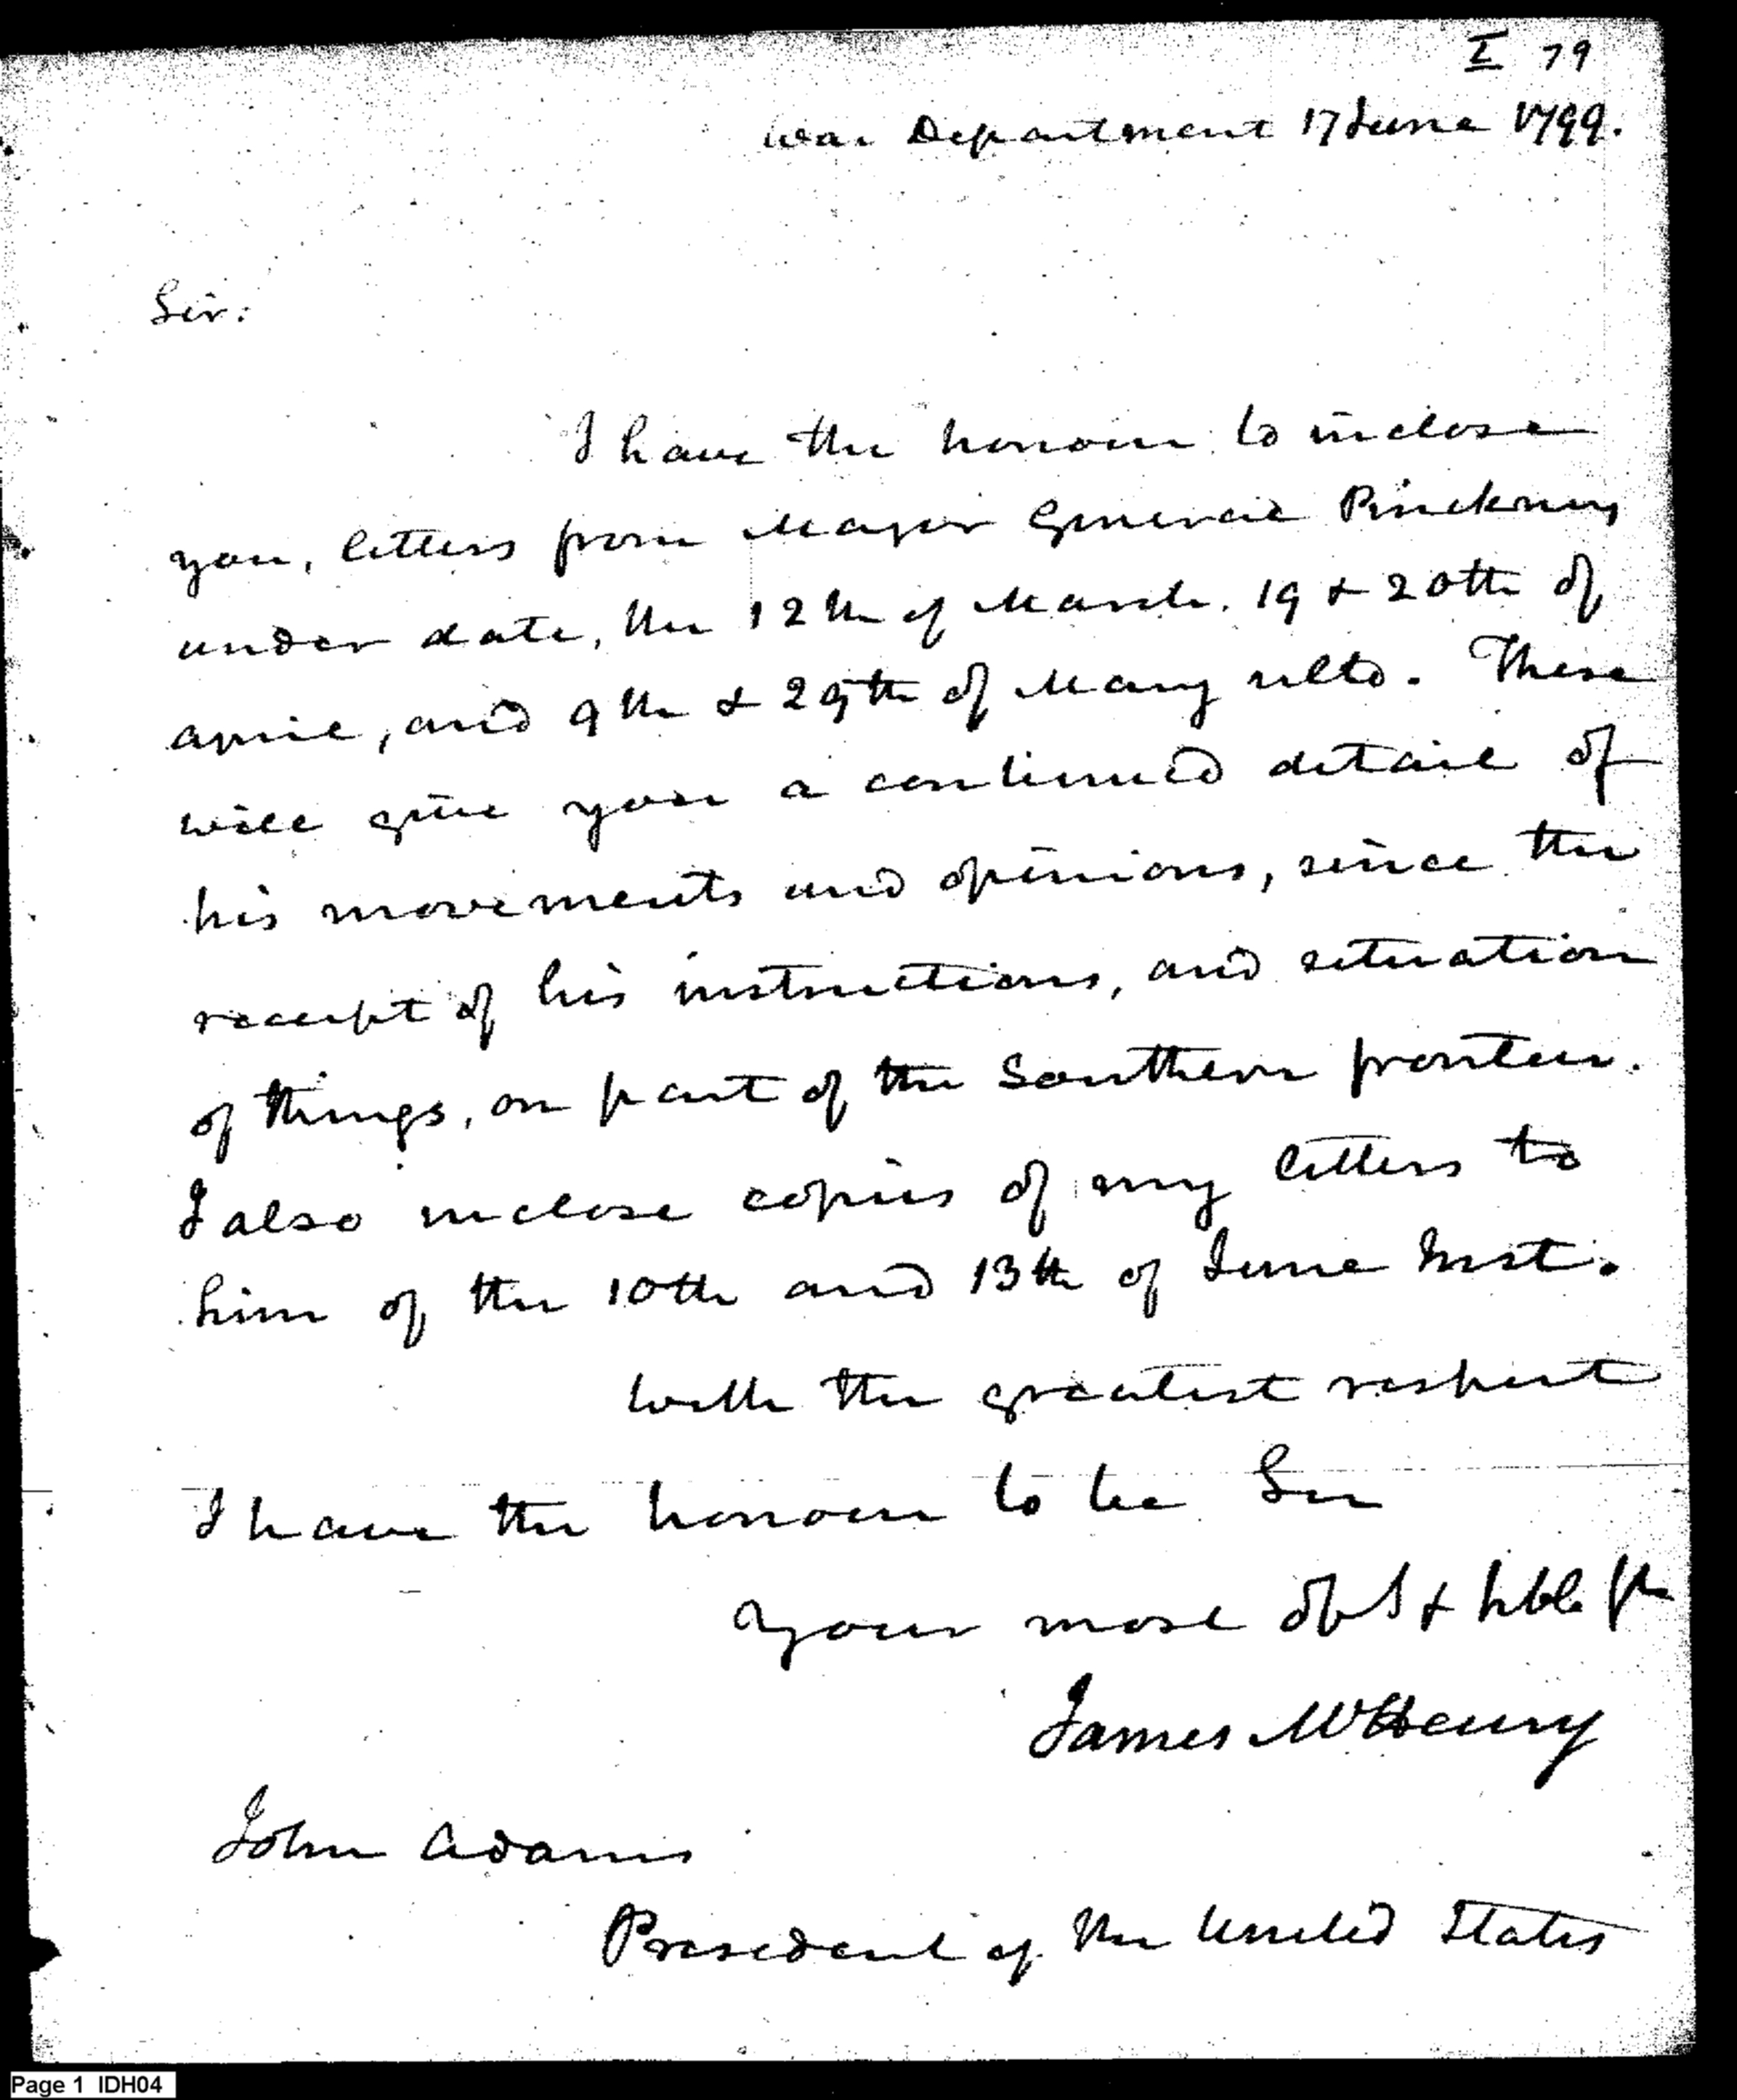 I 79
War Department 17 June 1799.
Sir.
I have the honour to inclose
you, letters from Major General Pinckney
under date, the 12th of March. 19 & 20th of
april, and 9th & 29th of May ulto. These
will give you a continued detail of
his movements and opinions, since the
receipt of his instructions, and situation
of things, on part of the Southern frontier.
I also inclose copies of my letters to
him of the 10th and 13th of June Inst.
With the greatest respect
I have the honour to be Sir
Your most obt & hble
James McHenry
John Adams
President of the United States
Page 1 IDH04